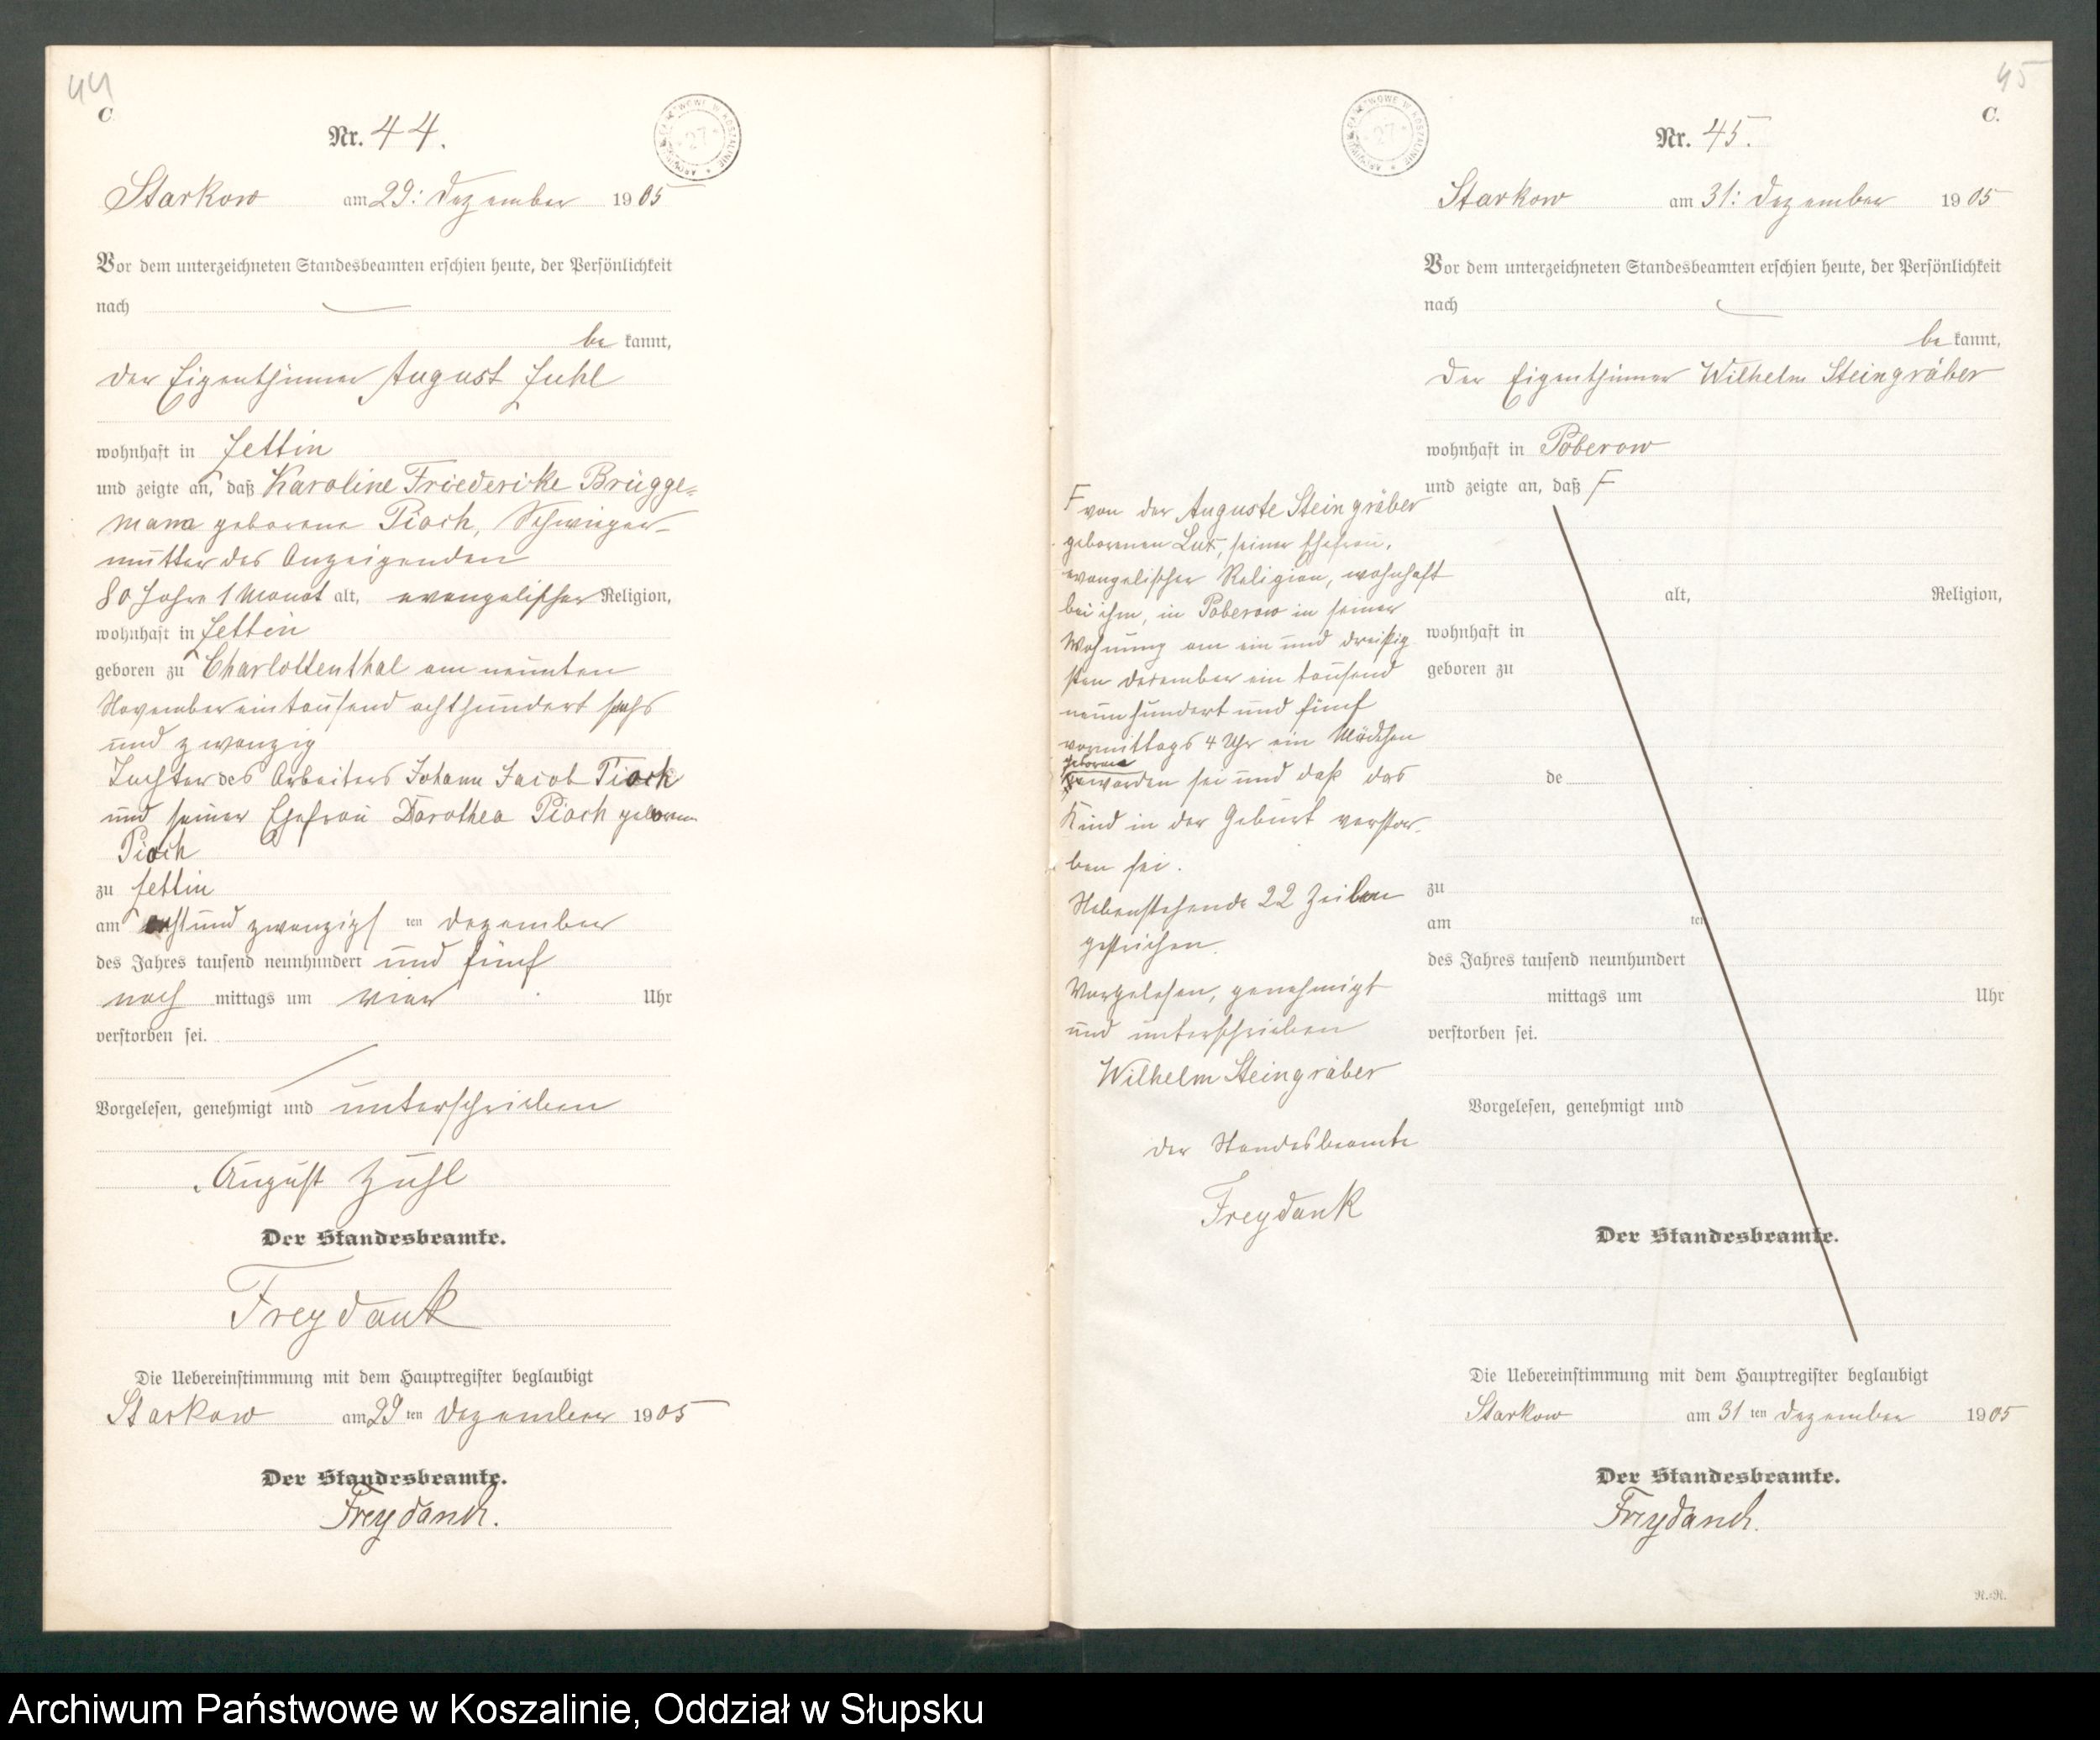 44
C
Nr. 44.
Starkow am 29: Dezember 1905
Vor dem unterzeichneten Standesbeamten erschien heute, der Persönlichkeit
nach
be kannt,
der Eigenthümer August Zuhl
wohnhaft in Zettin
und zeigte an, daß Karoline Friedericke Brügge=
mann geborene Pioch, Schwieger-
mutter des Anzeigenden
80 Jahre 1 Monat alt, evangelischer Religion,
wohnhaft in Zettin
geboren zu Charlottenthal am neunten
November eintausend achthundert sechs
und zwanzig
Tochter des Arbeiters Johann Jacob Pioch
und seiner Ehefrau Dorothea Pioch geborene
Pioch
zu Zettin
am acht und zwanzigsten Dezember
des Jahres tausend neunhundert und fünf
nach mittags um vier Uhr
verstorben sei.
Vorgelesen, genehmigt und unterschrieben
August Zuhl
Der Standesbeamte.
Freydank
Die Uebereinstimmung mit dem Hauptregister beglaubigt
Starkow am 29 ten Dezember 1905
Der Standesbeamte.
Freydank.
45
C.
Nr. 45.
Starkow am 31: Dezember 1905
Vor dem unterzeichneten Standesbeamten erschien heute, der Persönlichkeit
nach
be kannt,
der Eigenthümer Wilhelm Steingräber
wohnhaft in Poberow
und zeigte an, daß F
F von der Auguste Steingräber
geborenen Lux, seiner Ehefrau,
evangelischer Religion, wohnhaft
bei ihm, in Poberow in seiner
Wohnung am ein und dreißig
sten Dezember ein tausend
neunhundert und fünf
vormittags 4 Uhr ein Mädchen
geboren
worden sei und daß das
Kind in der Geburt verstor-
ben sei.
Nebenstehende 22 Zeilen
gestrichen.
Vorgelesen, genehmigt
und unterschrieben
Wilhelm Steingräber
Der Standesbeamte
Freydank
alt, Religion,
wohnhaft in
geboren zu
de
zu
am ten
des Jahres tausend neunhundert
mittags um Uhr
verstorben sei.
Vorgelesen, genehmigt und
Der Standesbeamte.
Die Uebereinstimmung mit dem Hauptregister beglaubigt
Starkow am 31 ten Dezember 1905
Der Standesbeamte.
Freydank.
R.=R.
Archiwum Państwowe w Koszalinie, Oddział w Słupsku